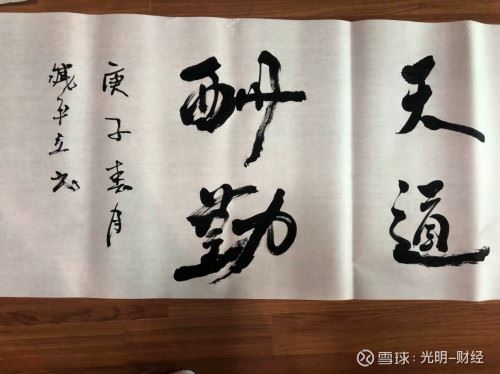 天道
酬勤
庚子春月
平立书
雪球:光明-财经